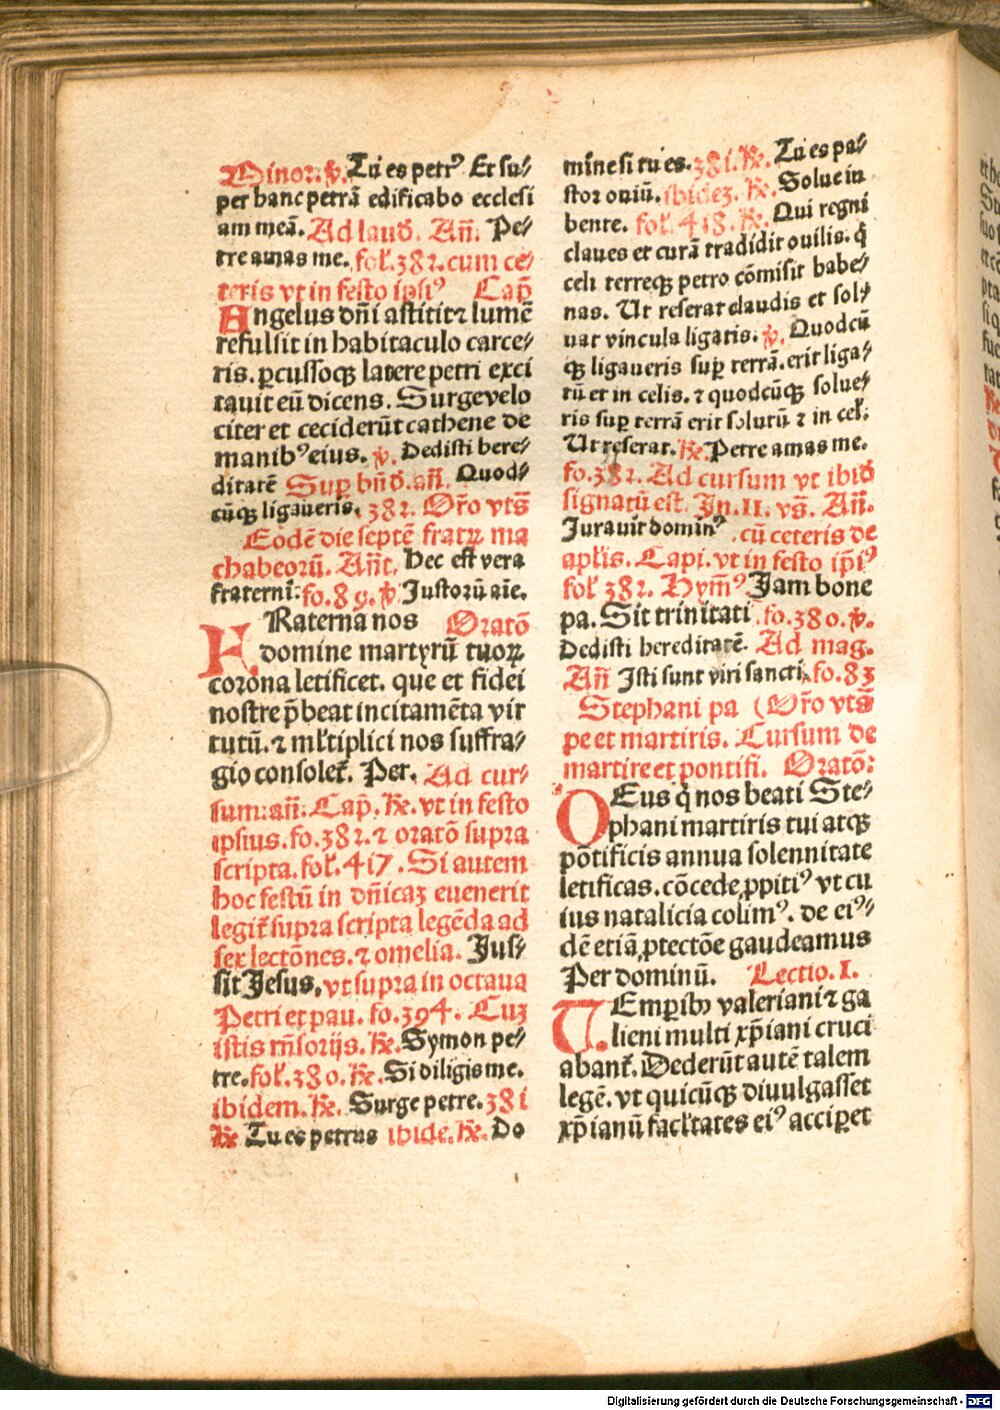 Minor. ꝟ. Tu es petrꝰ Et su⸗
per hanc petrā edificabo ecclesi
am meā. Ad laud. Añ. Pe⸗
tre amas me. fol. 382. cum ce⸗
teris vt in festo ipsiꝰ Cap̄
Angelus dn̄i astitit ⁊ lumē
refulsit in habitaculo carce⸗
ris. ꝑcussoqꝫ latere petri exci
tauit eū dicens. Surge velo
citer et ceciderūt cathene de
manibꝰ eius. ꝟ. Dedisti here⸗
ditatē Suꝑ bn̄d. añ. Quod⸗
cūqꝫ ligaueris. 382. Or̄o vts̄
Eodē die septē fratrꝝ ma
chabeorū. Añt. Hec est vera
fraterni: fo. 89. ꝟ Justorū aīe.
FRaterna nos Oratō
domine martyrū tuoꝝ
corona letificet. que et fidei
nostre p̄beat incitamēta vir
tutū. ⁊ ml̄tiplici nos suffra⸗
gio consolet̄. Per. Ad cur⸗
sum: añ. Cap̄. ℞. vt in festo
ipsius. fo. 382. ⁊ oratō supra
scripta. fol. 417. Si autem
hoc festū in dn̄icaꝫ euenerit
legit̄ supra scripta legēda ad
sex lectōnes. ⁊ omelia. Jus⸗
sit Jesus, vt supra in octaua
Petri et pau. fo. 394. Cuꝫ
istis rn̄sorijs. ℞. Symon pe⸗
tre. fol. 380. ℞. Si diligis me.
ibidem. ℞. Surge petre. 381
℞ Tu es petrus ibidē. ℞. Do
mine si tu es. 381. ℞. Tu es pa⸗
stor ouiū. ibideꝫ. ℞. Solue iu
bente. fol. 418. ℞. Qui regni
claues et curā tradidit ouilis. q̇
celi terreqꝫ petro cōmisit habe⸗
nas. Ut reserat claudis et sol⸗
uat vincula ligatis. ꝟ. Quodcū
qꝫ ligaueris suꝑ terrā. erit liga⸗
tū et in celis. ⁊ quodcūqꝫ solue⸗
ris suꝑ terrā erit solutū ⁊ in cel.
Ut reserat. ℞. Petre amas me.
fo. 382. Ad cursum vt ibid
signatū est. In. II. vs̄. Añ.
Jurauit dominꝰ. cū ceteris de
apl̄is. Capi. vt in festo ip̄iꝰ
fol 382. Hym̄ꝰ Jam bone
pa. Sit trinitati. fo. 380. ꝟ.
Dedisti hereditatē. Ad mag.
Añ Isti sunt viri sancti. fo. 83
Stephani pa (Or̄o vts̄
pe et martiris. Cursum de
martire et pontifi. Oratō:
DEus q̇ nos beati Ste⸗
phani martiris tui atqꝫ
pōtificis annua solennitate
letificas. cōcede ꝓpitiꝰ vt cu
ius natalicia colimꝰ. de eiꝰ⸗
dē etiā ꝓtectōe gaudeamus
Per dominū. Lectio. I.
TEmꝑibꝫ valeriani ⁊ ga
lieni multi xp̄iani cruci
abant̄. Dederūt autē talem
legē. vt quicūqꝫ diuulgasset
xp̄ianū facl̄tates eiꝰ acciꝑet
Digitalisierung gefördert durch die Deutsche Forschungsgemeinschaft - DFG